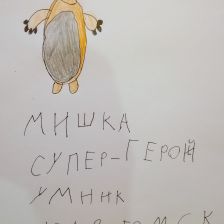 МИШКА
СУПЕР-ГЕРОЙ
УМНИК